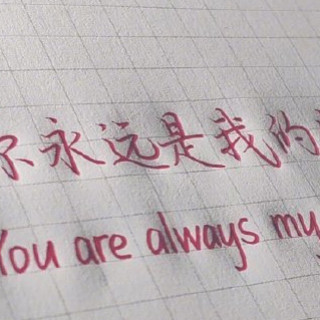 你永远是我的
You are always my